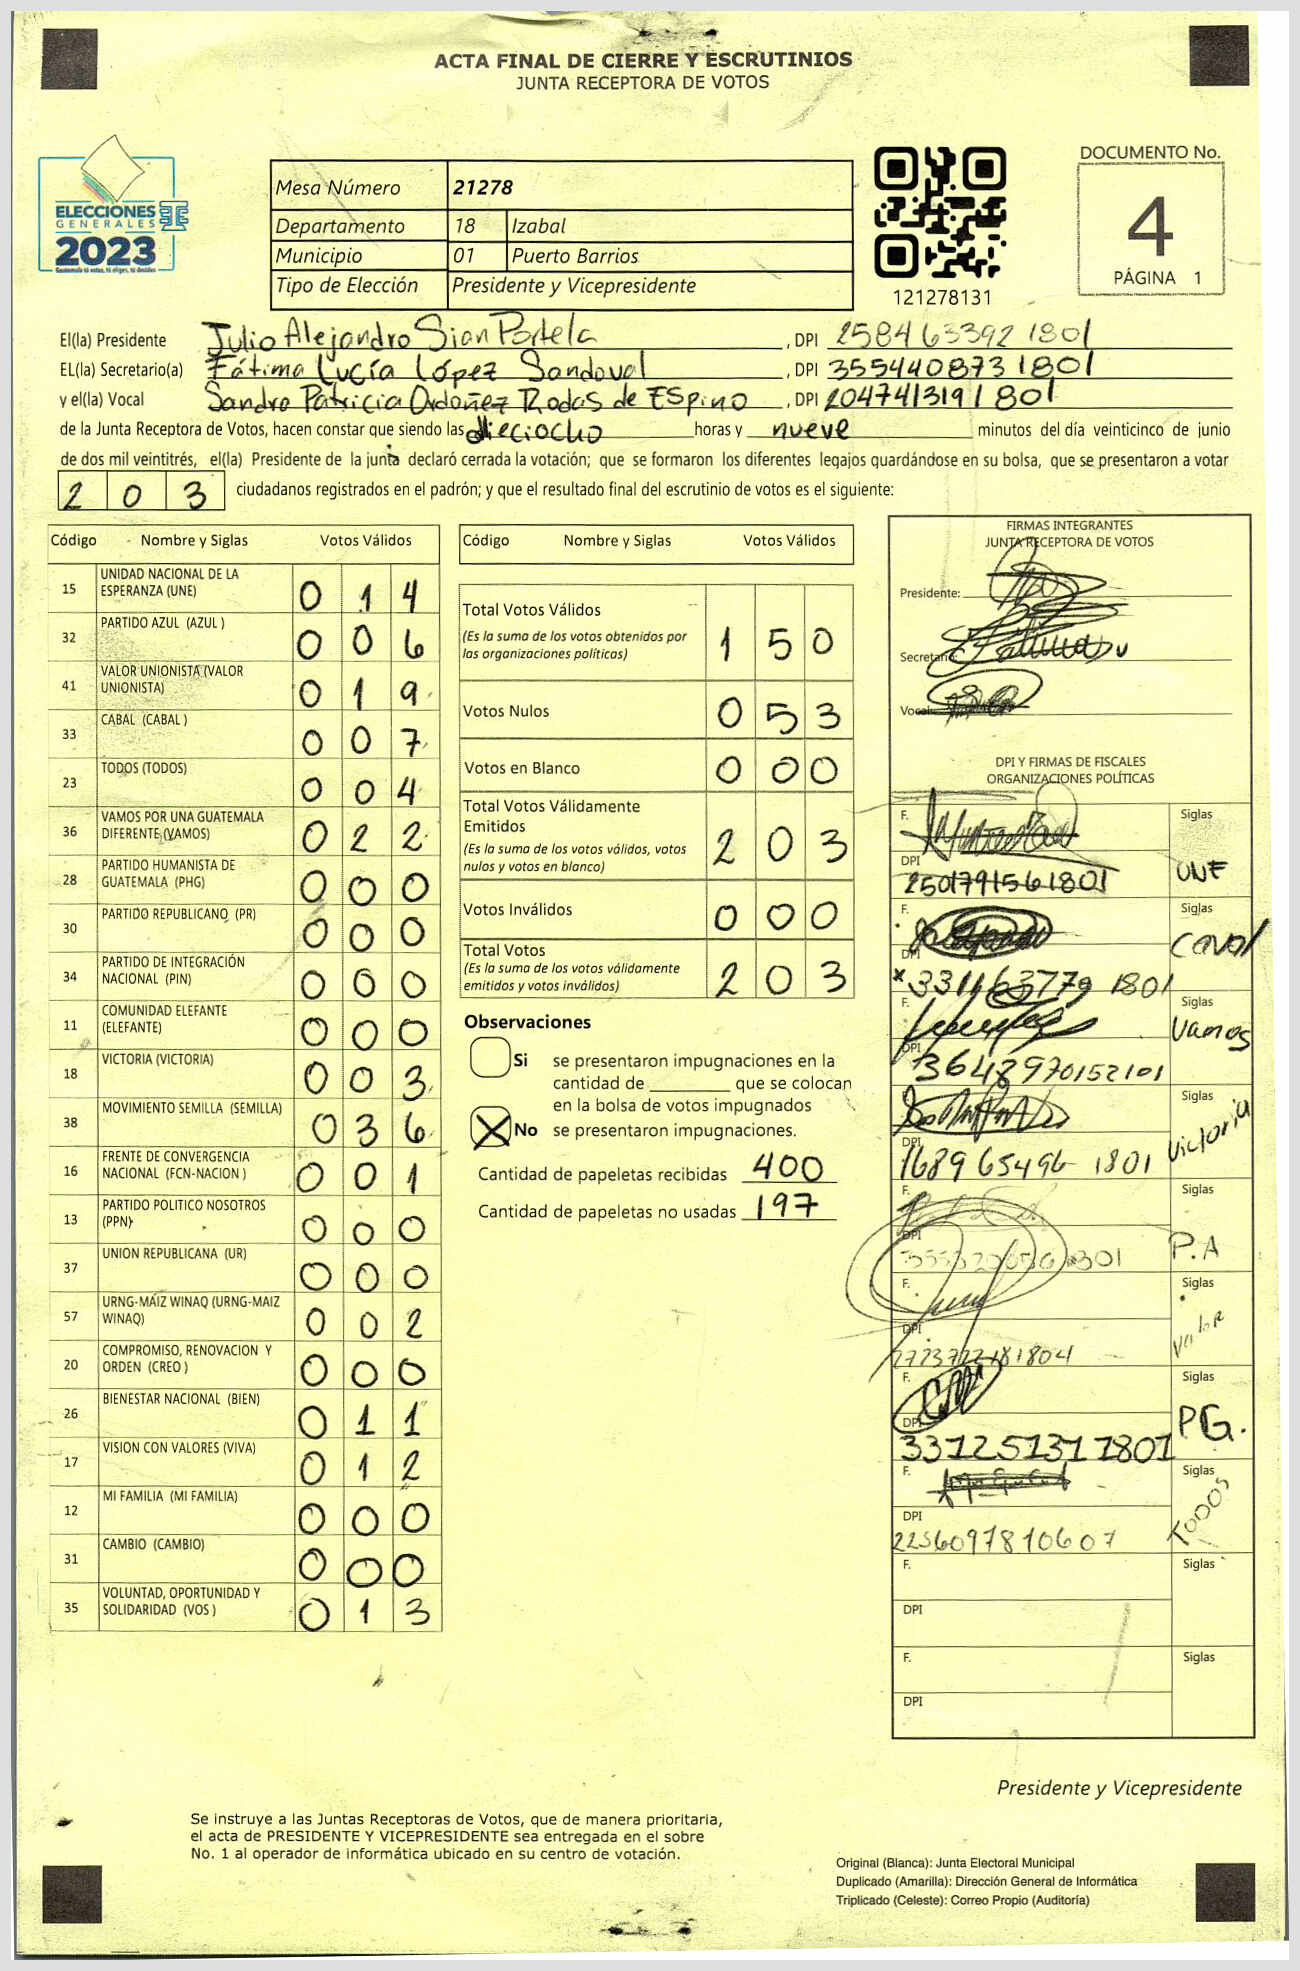 ACTA FINAL DE CIERRE Y ESCRUTINIOS
JUNTA RECEPTORA DE VOTOS
ELECCIONES
GENERALES
2023
Guatemala tú votas, tú eliges, tú decides
Mesa Número 21278
Departamento 18 Izabal
Municipio 01 Puerto Barrios
Tipo de Elección Presidente y Vicepresidente
121278131
DOCUMENTO No.
4
PÁGINA 1
El(la) Presidente Julio Alejandro Sian Portela , DPI 2584633921801
EL(la) Secretario(a) Fátima Lucía López Sandoval , DPI 3554408731801
y el(la) Vocal Sandra Patricia Ordoñez Rodas de Espino , DPI 2047413191801
de la Junta Receptora de Votos, hacen constar que siendo las dieciocho horas y nueve minutos del día veinticinco de junio
de dos mil veintitrés, el(la) Presidente de la junta declaró cerrada la votación; que se formaron los diferentes legajos guardándose en su bolsa, que se presentaron a votar
2 0 3 ciudadanos registrados en el padrón; y que el resultado final del escrutinio de votos es el siguiente:
Código Nombre y Siglas Votos Válidos
15 UNIDAD NACIONAL DE LA ESPERANZA (UNE) 0 1 4
32 PARTIDO AZUL (AZUL ) 0 0 6
41 VALOR UNIONISTA (VALOR UNIONISTA) 0 1 9
33 CABAL (CABAL ) 0 0 7
23 TODOS (TODOS) 0 0 4
36 VAMOS POR UNA GUATEMALA DIFERENTE (VAMOS) 0 2 2
28 PARTIDO HUMANISTA DE GUATEMALA (PHG) 0 0 0
30 PARTIDO REPUBLICANO (PR) 0 0 0
34 PARTIDO DE INTEGRACIÓN NACIONAL (PIN) 0 0 0
11 COMUNIDAD ELEFANTE (ELEFANTE) 0 0 0
18 VICTORIA (VICTORIA) 0 0 3
38 MOVIMIENTO SEMILLA (SEMILLA) 0 3 6
16 FRENTE DE CONVERGENCIA NACIONAL (FCN-NACION ) 0 0 1
13 PARTIDO POLITICO NOSOTROS (PPN) 0 0 0
37 UNION REPUBLICANA (UR) 0 0 0
57 URNG-MAIZ WINAQ (URNG-MAIZ WINAQ) 0 0 2
20 COMPROMISO, RENOVACION Y ORDEN (CREO ) 0 0 0
26 BIENESTAR NACIONAL (BIEN) 0 1 1
17 VISION CON VALORES (VIVA) 0 1 2
12 MI FAMILIA (MI FAMILIA) 0 0 0
31 CAMBIO (CAMBIO) 0 0 0
35 VOLUNTAD, OPORTUNIDAD Y SOLIDARIDAD (VOS ) 0 1 3
Código Nombre y Siglas Votos Válidos
Total Votos Válidos 1 5 0
(Es la suma de los votos obtenidos por
las organizaciones políticas)
Votos Nulos 0 5 3
Votos en Blanco 0 0 0
Total Votos Válidamente
Emitidos 2 0 3
(Es la suma de los votos válidos, votos
nulos y votos en blanco)
Votos Inválidos 0 0 0
Total Votos 2 0 3
(Es la suma de los votos válidamente
emitidos y votos inválidos)
Observaciones
Si se presentaron impugnaciones en la
cantidad de ________ que se colocan
en la bolsa de votos impugnados
X No se presentaron impugnaciones.
Cantidad de papeletas recibidas 400
Cantidad de papeletas no usadas 197
FIRMAS INTEGRANTES
JUNTA RECEPTORA DE VOTOS
Presidente:
Secretario:
Vocal:
DPI Y FIRMAS DE FISCALES
ORGANIZACIONES POLÍTICAS
F. Siglas
DPI 2501791561801 UNE
F. Siglas
DPI Caval
F. Siglas
DPI 3648970152101 Vamos
F. Siglas
DPI 1689654961801 Victoria
F. Siglas
DPI P.A
F. Siglas
DPI Valor
F. Siglas
DPI 3312513171801 PG.
F. Siglas
DPI 2256097810607 TODOS
F. Siglas
DPI
F. Siglas
DPI
Presidente y Vicepresidente
Se instruye a las Juntas Receptoras de Votos, que de manera prioritaria,
el acta de PRESIDENTE Y VICEPRESIDENTE sea entregada en el sobre
No. 1 al operador de informática ubicado en su centro de votación.
Original (Blanca): Junta Electoral Municipal
Duplicado (Amarilla): Dirección General de Informática
Triplicado (Celeste): Correo Propio (Auditoría)